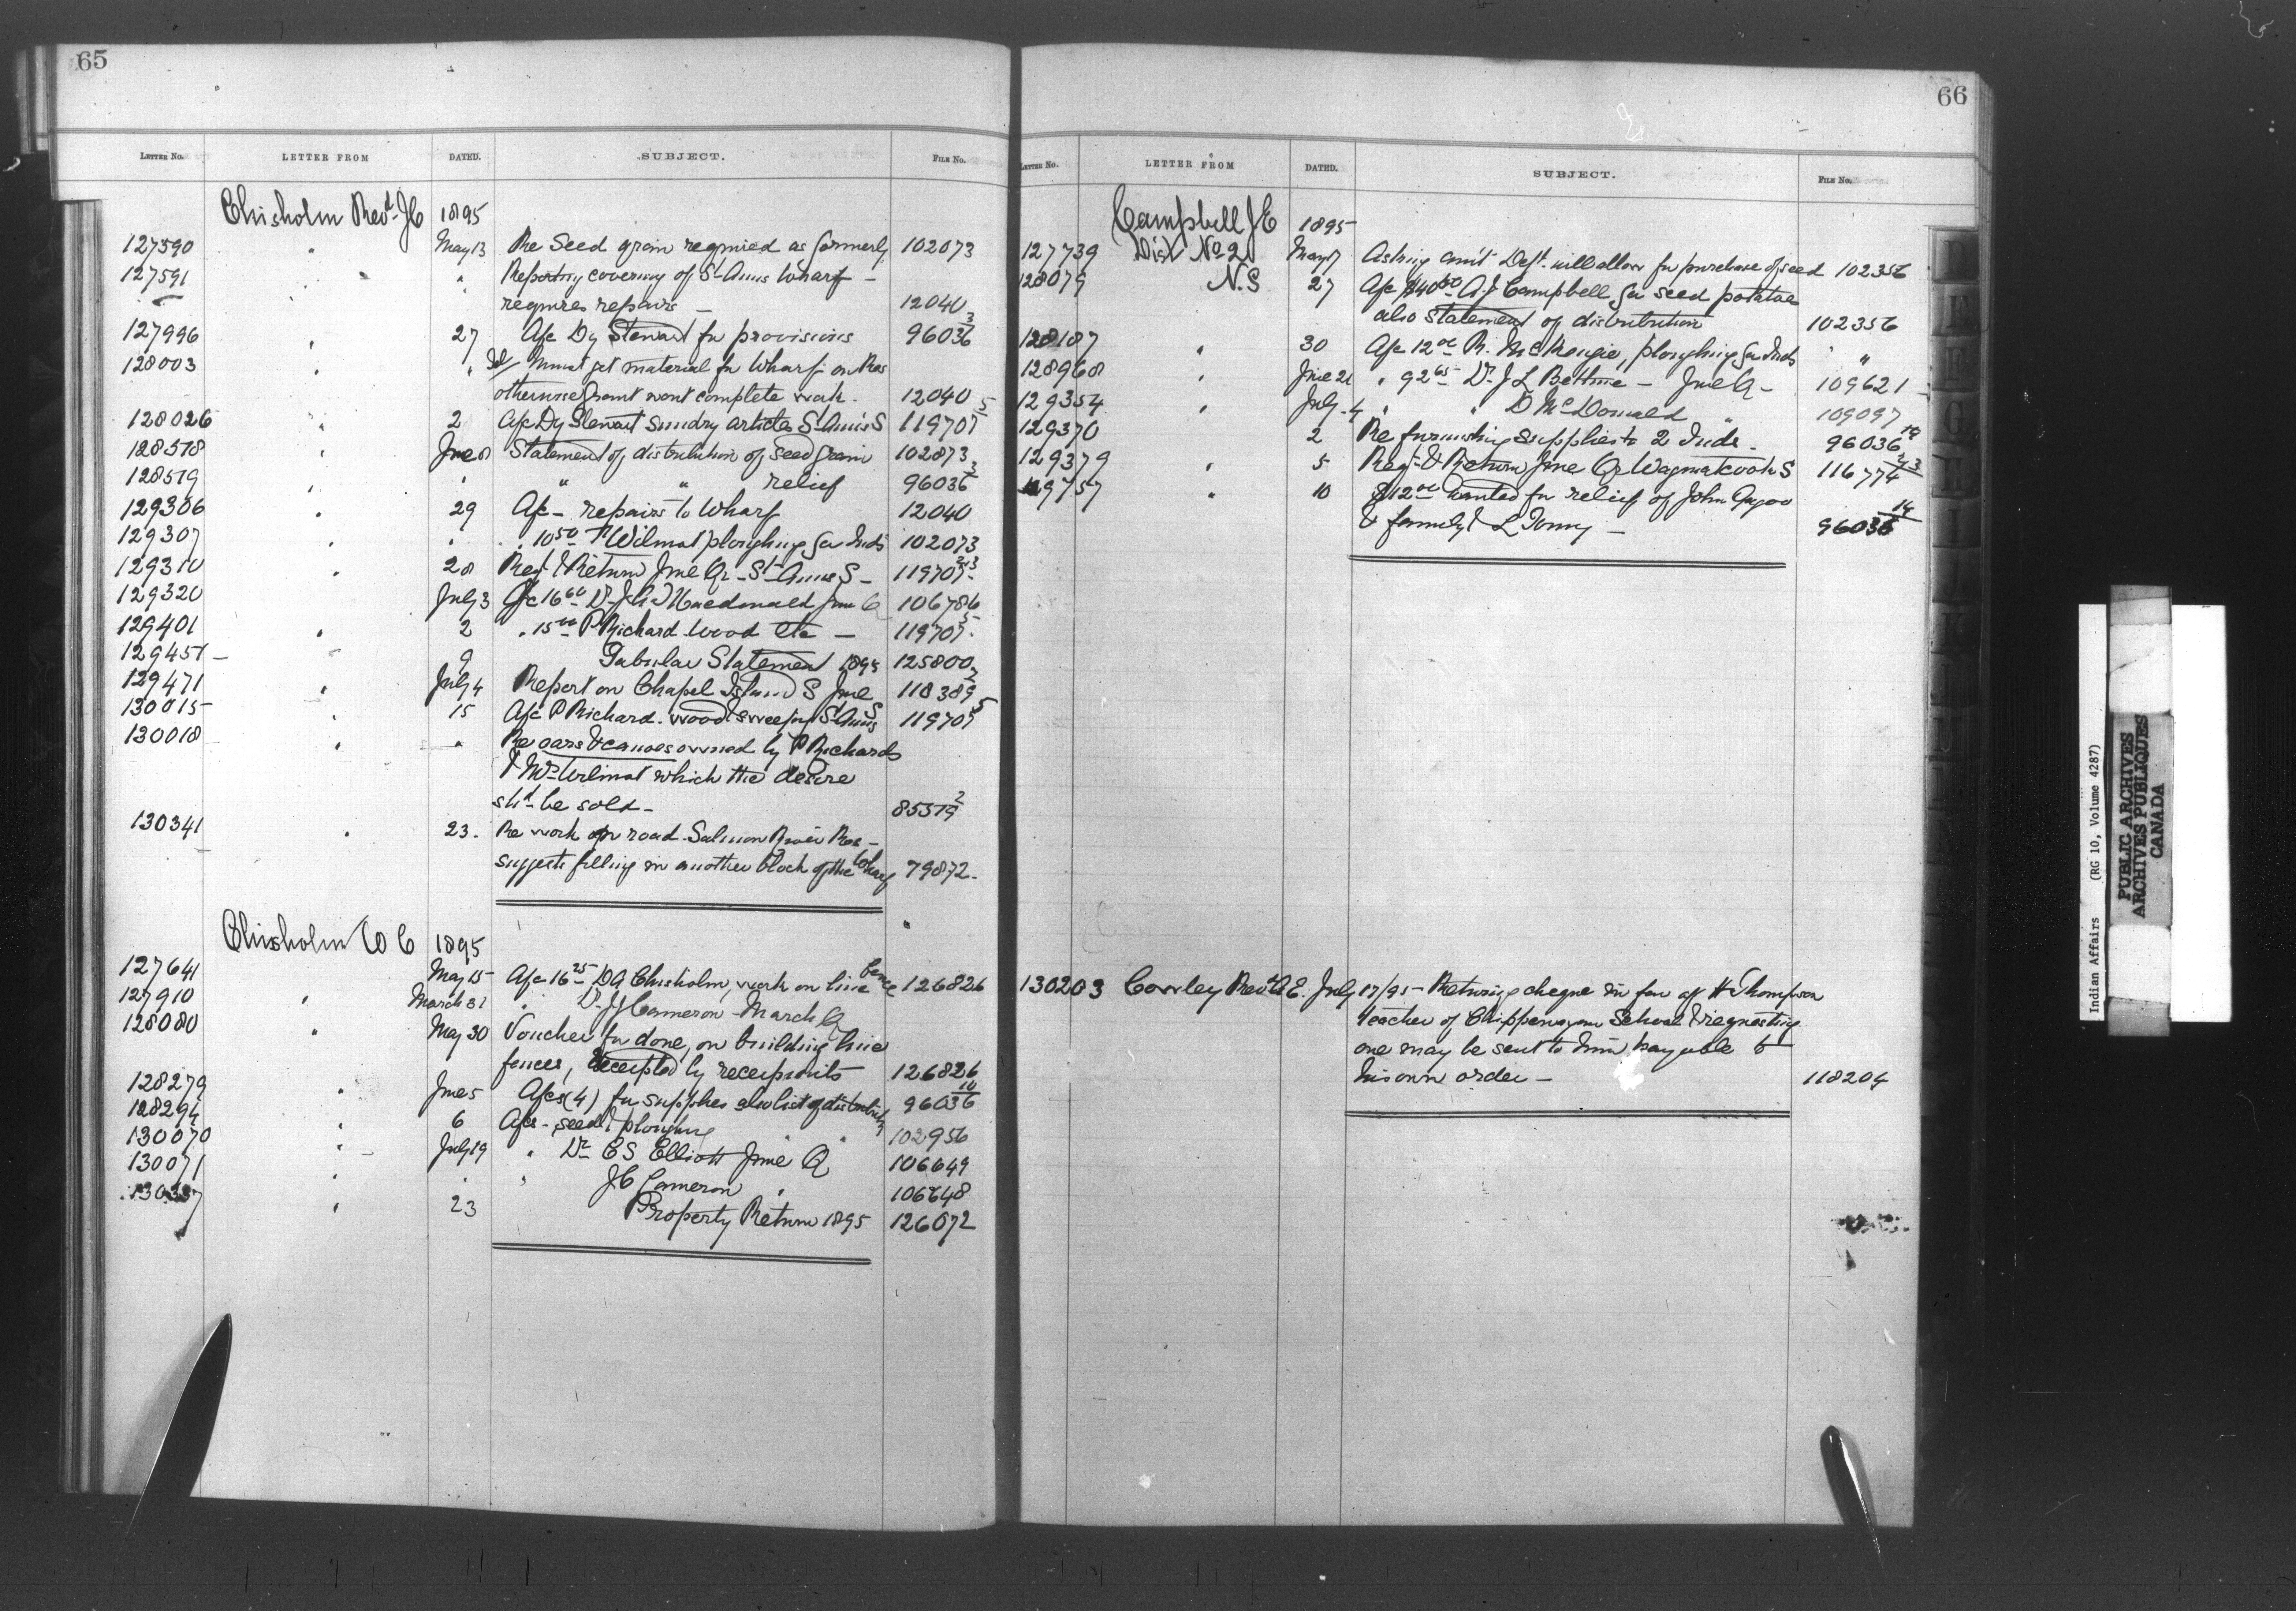 65
LETTER No. LETTER FROM DATED. SUBJECT. FILE No.
Chisholm Revd. J C 1895
127590 " May 13 Re Seed grain required as formerly 102073
127591 " " Reporting covering of St Anns Wharf -
requires repairs - 12040
127996 " 27 A/c Dy Stewart for provisions 96036 3
128003 " " Must get material for Wharf on Res
otherwise Grant wont complete work. 12040
128026 " 2 A/c Dy Stewart sundry articles St Anns S 119707 5
128578 " June 8 Statement of distribution of seed grain 102873
128579 " " " " relief 96036 3
129306 " 29 A/c - repairs to Wharf 12040
129307 " " 10 50 Wilmot ploughing for Inds 102073
129310 " 28 Rept & Return June Qr - St Anns S - 119707 2-3
129320 July 3 A/c 16 60 Dr Macdonald June Q 106786
129401 " 2 " 15 00 P Richard wood etc - 119707 5
129457 - 9 Tabular Statement 1895 125800
129471 " July 4 Report on Chapel Island S June 118389 2
130015 " 15 A/c P Richard wood & sweeping St Anns S 119707 5
130018 " " Re oars & canoes owned by P Richards
& Mrs Wilmot which the desire
shd be sold - 85579 2
130341 " 23. Re work on road Salmon River Res -
suggests filling in another block of the Wharf 79872.
Chisholm W C 1895
127641 May 15 A/c 16 25 D A Chisholm, work on line fence 126826
127910 " March 31 " Dr J J Cameron March Q
128080 " May 30 Voucher for done, on building line
fences, receipted by recipients 126826
128279 " June 5 A/cs (4) for supplies also list of distribution 96036 10
128294 " 6 A/cs - seed & ploughing " " 102956
130070 " July 19 " Dr C S Elliott June Q 106649
130071 " " " J C Cameron " 106648
130337 " 23 Property Return 1895 126072
66
LETTER No. LETTER FROM DATED. SUBJECT. FILE No.
Campbell J E 1895
127739 Dist No 2 May 17 Asking amt Dept. will allow for purchase of seed 102356
128079 N.S 27 A/c $40 50 A J Campbell for seed potatoe
also statement of distribution 102356
128187 " 30 A/c 12 00 R. McKenzie, ploughing for Inds "
128968 " June 21 " 92 65 Dr J L Bethune - June Q - 109621
129354 " July 4 " " D McDonald " 109097
129370 2 Re furnishing supplies to 2 Inds. 96036 14
129379 " 5 Rept & Return June Qr Wagmatcook S 116774 2-3
129757 " 10 $12 00 wanted for relief of John Gogoo
& family & L Tomy - 96036 14
130203 Cowley Revd A E. July 17/95 - Returning cheque in fav of H Thompson
teacher of Chippewayan School & requesting
one may be sent to him payable to
his own order - 118204
Indian Affairs (RG 10, Volume 4287)
PUBLIC ARCHIVES
ARCHIVES PUBLIQUES
CANADA